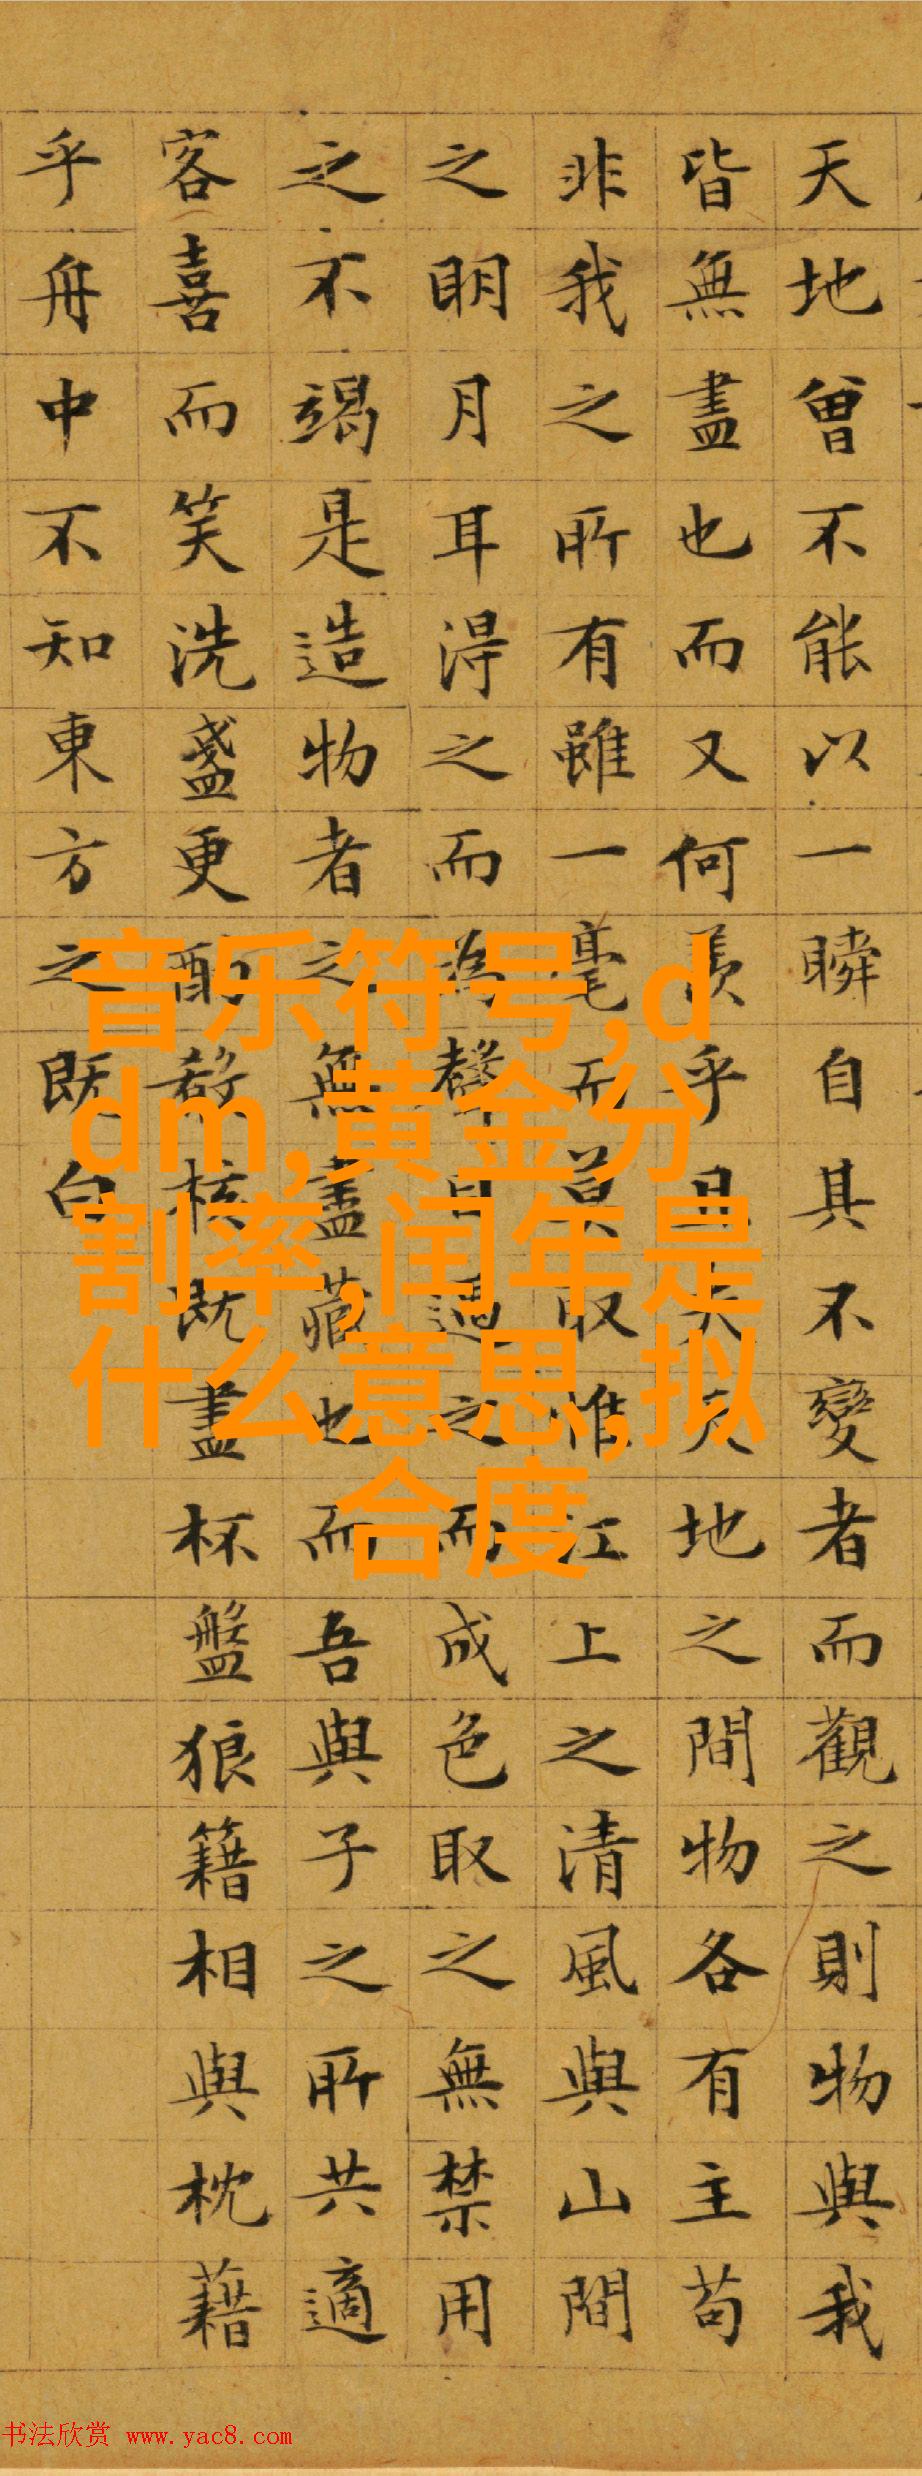 天地曾不能以一瞬自其不變者而觀之則物與我
皆無盡也而又何羨乎且夫天地之間物各有主苟
非我之所有雖一毫而莫取惟江上之清風與山間
之明月耳得之而為聲目遇之而成色取之無禁用
之不竭是造物者之無盡藏也而吾與子之所共適
客喜而笑洗盞更酌殽核既盡杯盤狼籍相與枕藉
乎舟中不知東方之既白
音乐符号,d
dm,黄金分
割率,闰年是
什么意思,拟
合度
书法欣赏 www.yac8.com